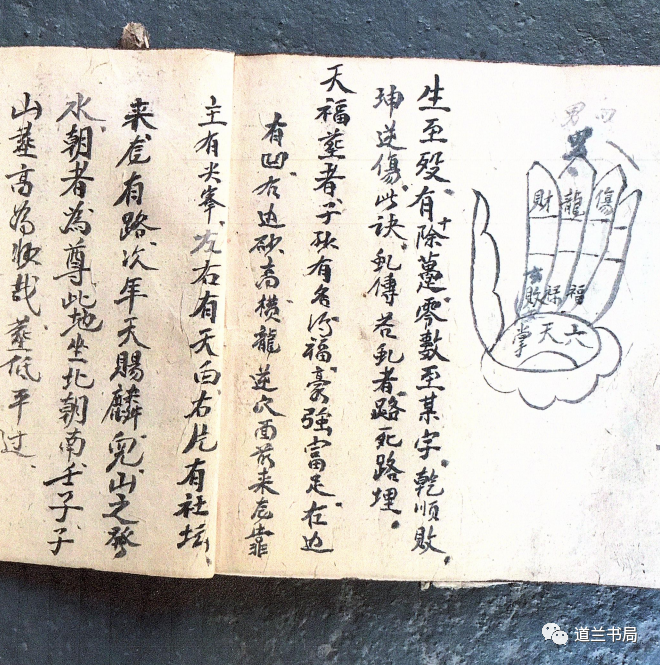 男
男
財 龍 傷
敗 禄 福
六天掌
生至殁有十除薹零數至某字乾順敗
坤逆傷此訣乱傳若乱者路死路埋
天福蓝者子孙有香汾福豪強富足在边
有凹右边砂高横龍逆穴面前来龙靠
主有尖峯左右有天白右片有社坛
来龙有路次年天賜麟児山之發
水朝者為尊此地坐北朝南壬子子
山塟高為败哉塟低平过
道兰书局